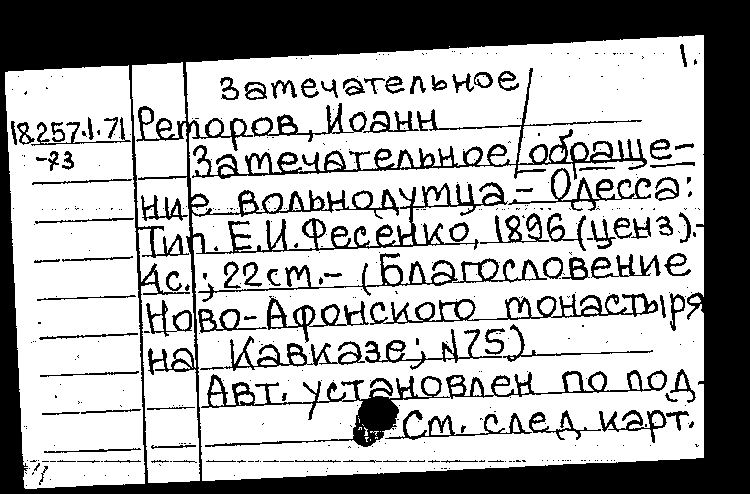 1.
Замечательное
18.257.1.71 Реторов, Иоанн
-73 Замечательное обраще-
ние вольнодумца. – Одесса:
Тип. Е.И. Фесенко, 1896 (ценз).-
4с.; 22 см. – (Благословение
Ново-Афонского монастыря
на Кавказе; N75).
Авт. установлен по под-
См. след. карт.